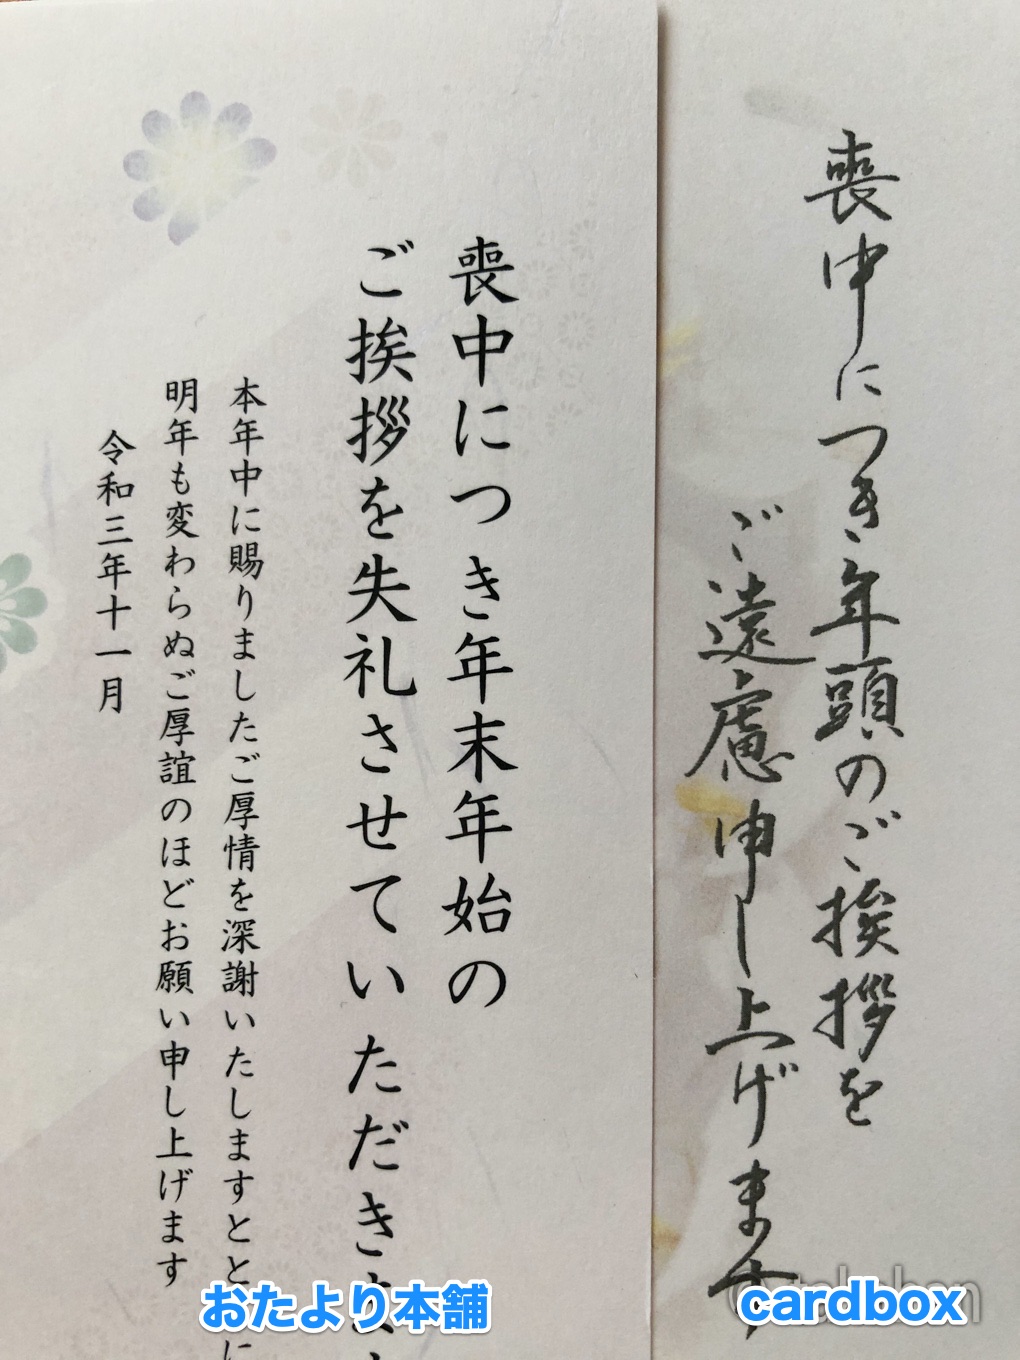 喪中につき年頭のご挨拶を
ご遠慮申し上げます
喪中につき年末年始の
ご挨拶を失礼させていただきま
本年中に賜りましたご厚情を深謝いたしますととに
明年も変わらぬご厚誼のほどお願い申し上げます
令和三年十一月
おたより本舗
cardbox